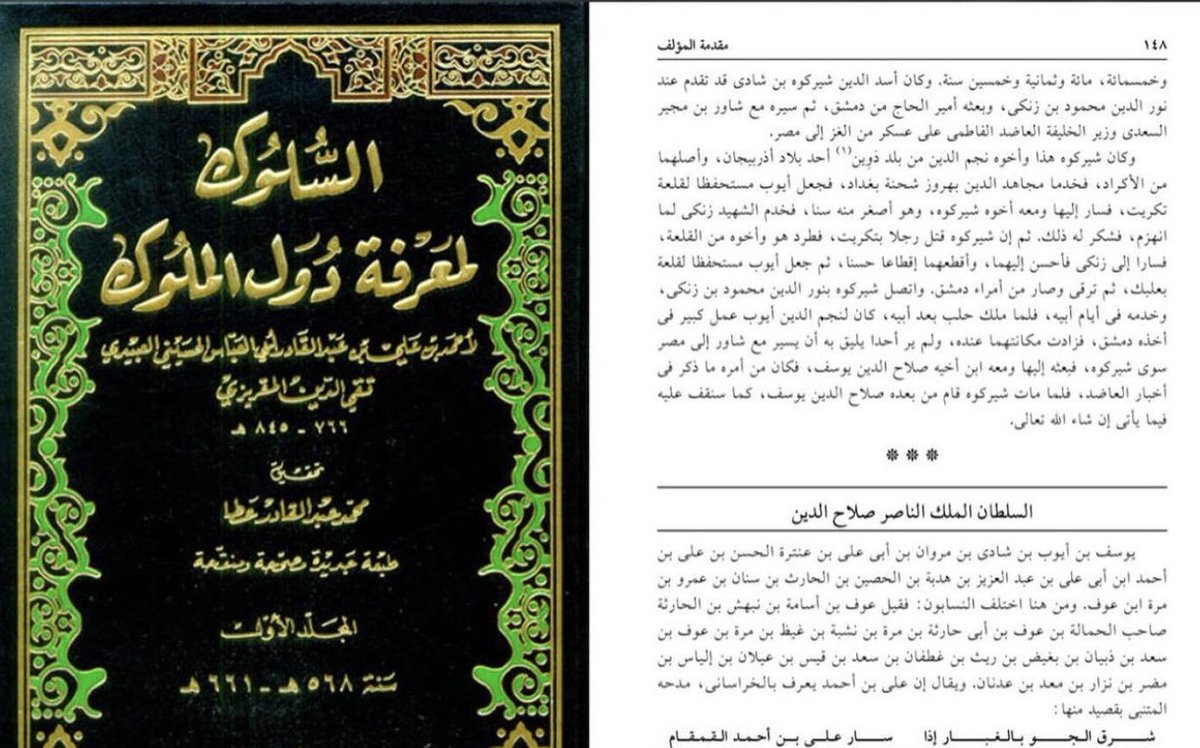 السلوك
لمعرفة دول الملوك
لأحمد بن علي بن عبد القادر أبي العباس الحسيني العبيدي
تقي الدين المقريزي
٧٦٦ - ٨٤٥ هـ
تحقيق
محمد عبد القادر عطا
طبعة جديدة مصححة ومنقحة
المجلد الأول
سنة ٥٦٨ هـ - ٦٦١ هـ
١٤٨ مقدمة المؤلف
وخمسمائة، مائة وثمانية وخمسين سنة. وكان أسد الدين شيركوه بن شادى قد تقدم عند
نور الدين محمود بن زنكى، وبعثه أمير الحاج من دمشق، ثم سيره مع شاور بن مجير
السعدى وزير الخليفة العاضد الفاطمى على عسكر من الغز إلى مصر.
وكان شيركوه هذا وأخوه نجم الدين من بلد دَوِين(١) أحد بلاد أذربيجان، وأصلهما
من الأكراد، فخدما مجاهد الدين بهروز شحنة بغداد، فجعل أيوب مستحفظا لقلعة
تكريت، فسار إليها ومعه أخوه شيركوه، وهو أصغر منه سنا، فخدم الشهيد زنكى لما
انهزم، فشكر له ذلك. ثم إن شيركوه قتل رجلا بتكريت، فطرد هو وأخوه من القلعة،
فسارا إلى زنكى فأحسن إليهما، وأقطعهما إقطاعا حسنا، ثم جعل أيوب مستحفظا لقلعة
بعلبك، ثم ترقى وصار من أمراء دمشق. واتصل شيركوه بنور الدين محمود بن زنكى،
وخدمه فى أيام أبيه، فلما ملك حلب بعد أبيه، كان لنجم الدين أيوب عمل كبير فى
أخذه دمشق، فزادت مكانتهما عنده، ولم ير أحدا يليق به أن يسير مع شاور إلى مصر
سوى شيركوه، فبعثه إليها ومعه ابن أخيه صلاح الدين يوسف، فكان من أمره ما ذكر فى
أخبار العاضد، فلما مات شيركوه قام من بعده صلاح الدين يوسف، كما سنقف عليه
فيما يأتى إن شاء الله تعالى.
* * *
السلطان الملك الناصر صلاح الدين
يوسف بن أيوب بن شادى بن مروان بن أبى على بن عنترة الحسن بن على بن
أحمد ابن أبى على بن عبد العزيز بن هدبة بن الحصين بن الحارث بن سنان بن عمرو بن
مرة ابن عوف. ومن هنا اختلف النسابون: فقيل عوف بن أسامة بن نبهش بن الحارثة
صاحب الحمالة بن عوف بن أبى حارثة بن مرة بن نشبة بن غيظ بن مرة بن عوف بن
سعد بن ذبيان بن بغيض بن ريث بن غطفان بن سعد بن قيس بن عيلان بن إلياس بن
مضر بن نزار بن معد بن عدنان. ويقال إن على بن أحمد يعرف بالخراسانى، مدحه
المتنبى بقصيد منها:
شرق الجو بالغبار إذا سار على بن أحمد القمقام